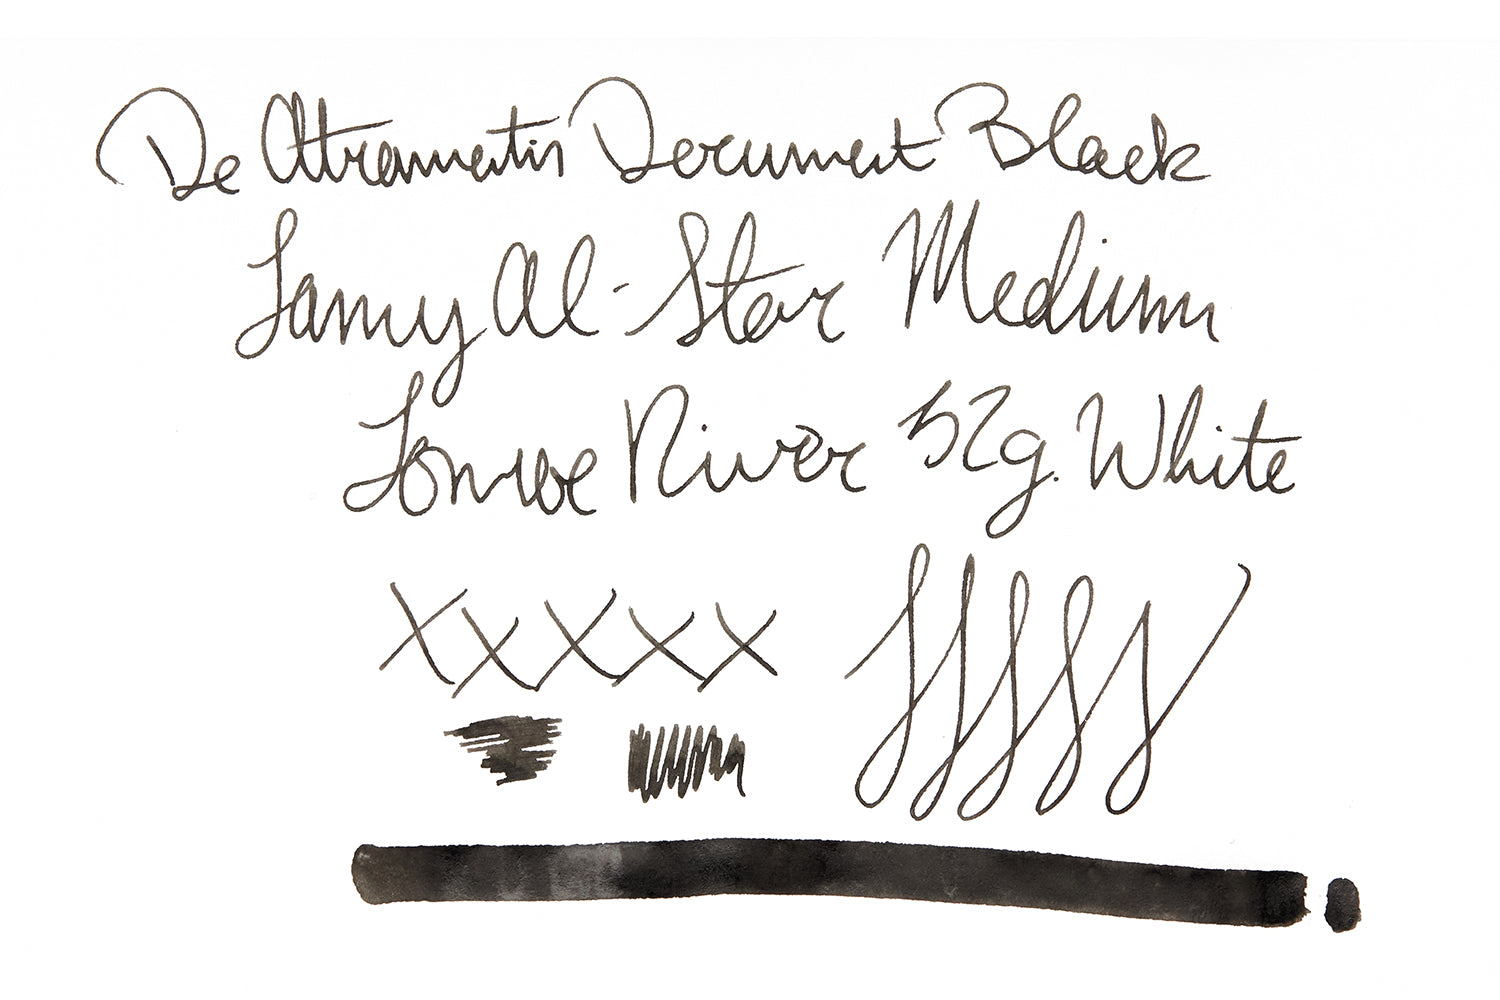 De Atramentis Document Black
Lamy Al-Star Medium
Tomoe River 52g. White
xxxxx